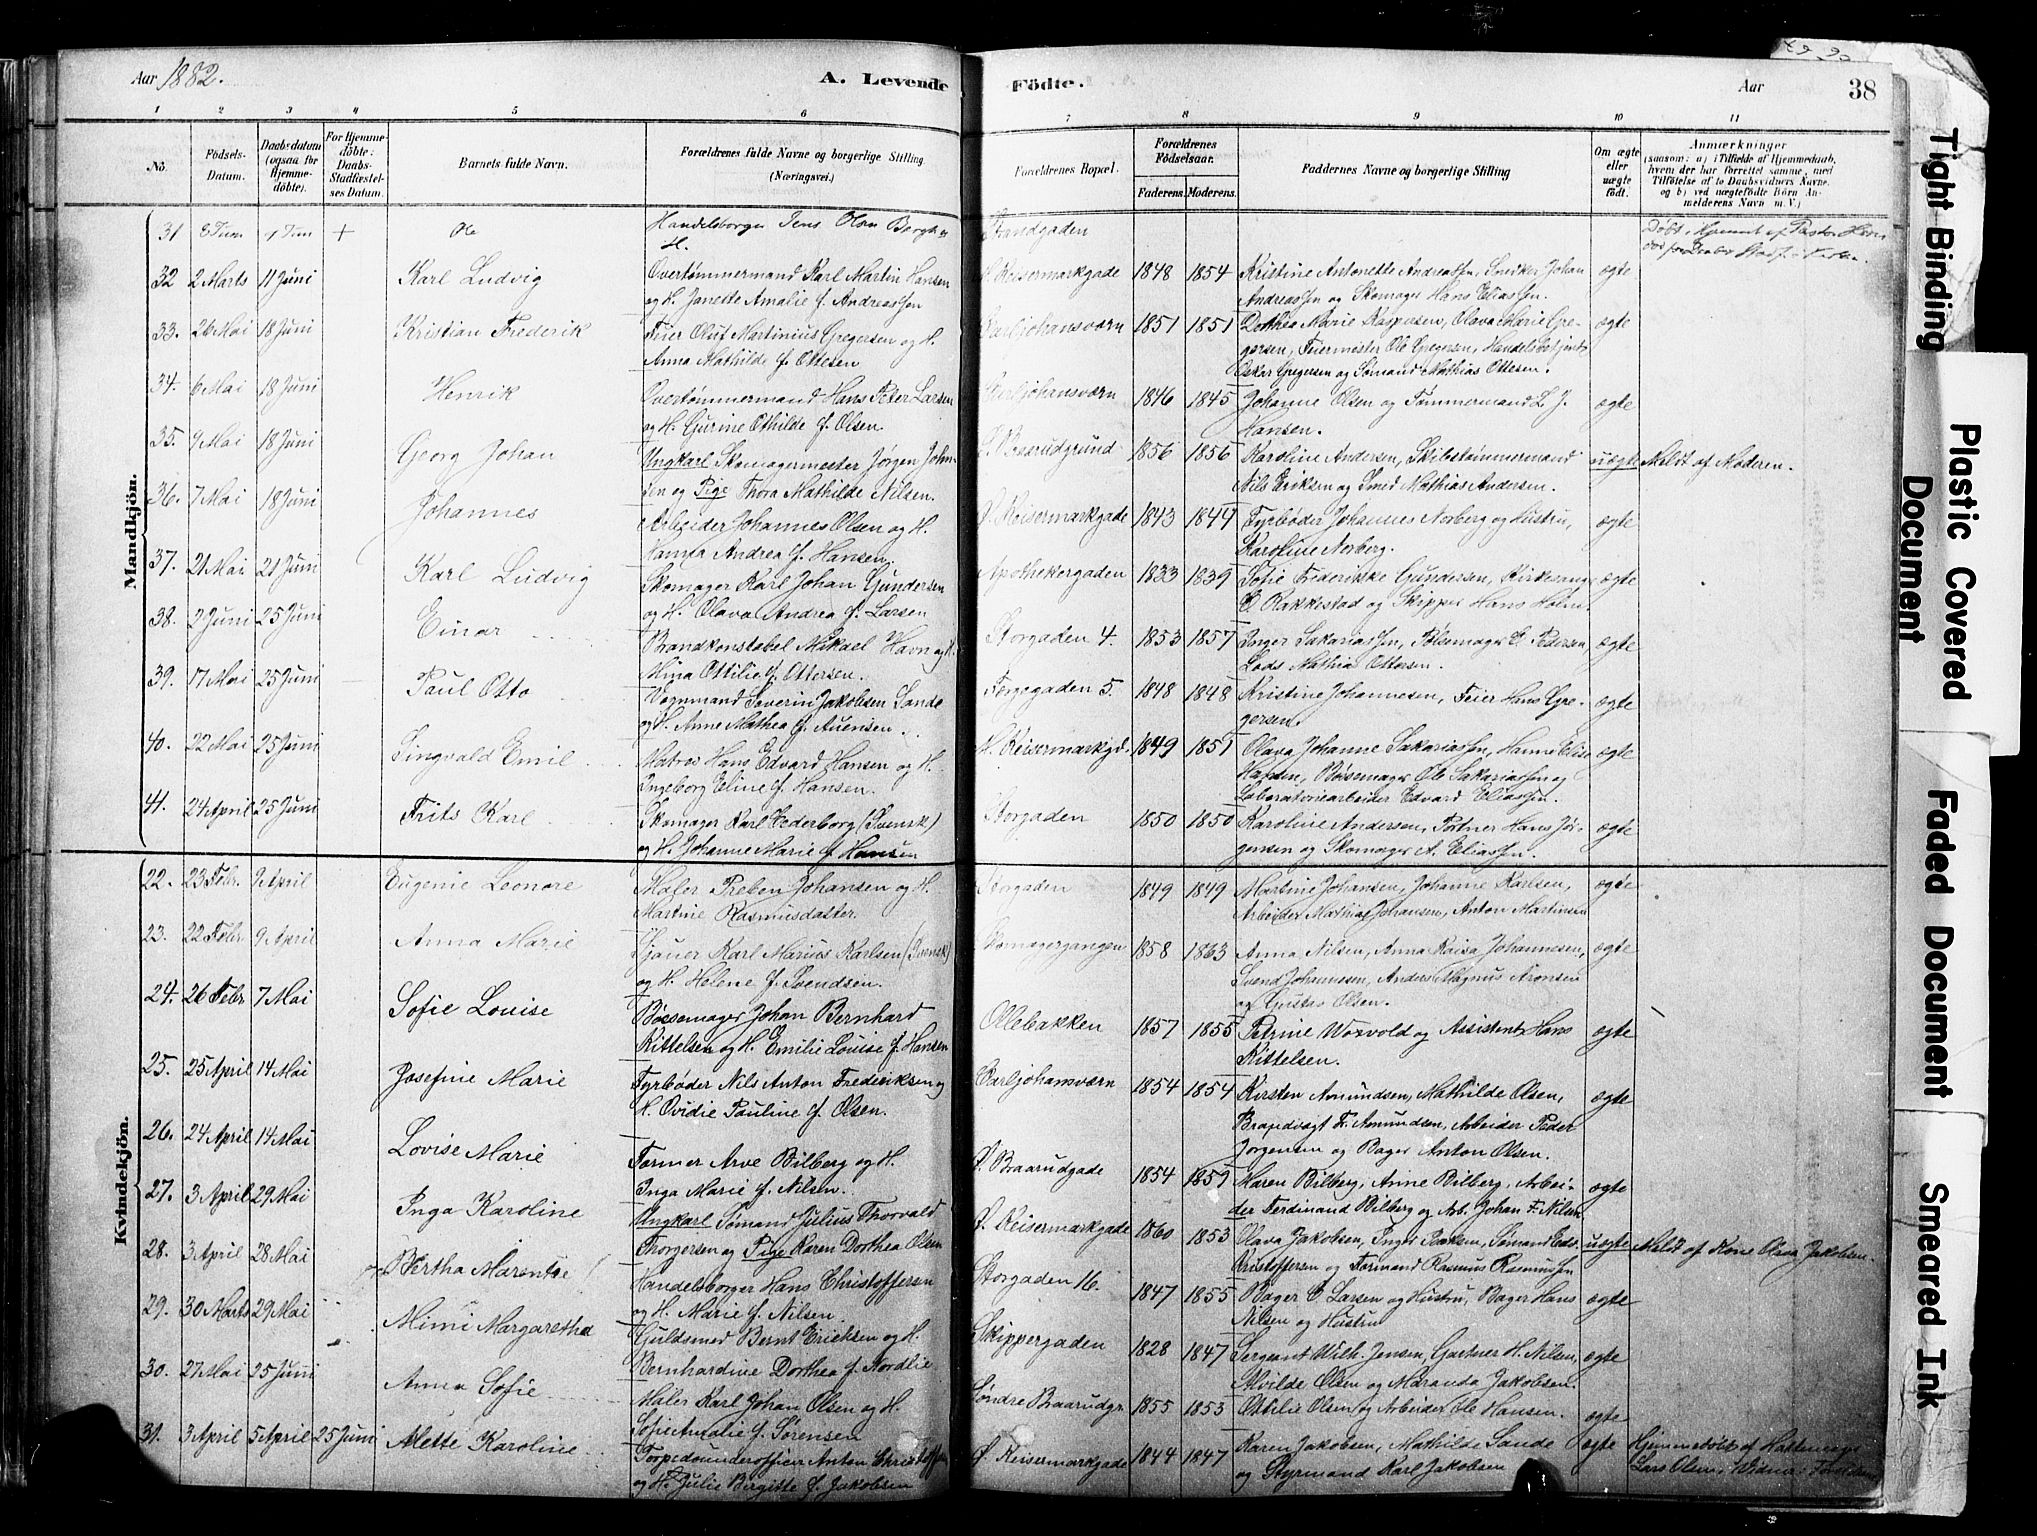 Aar 1882.
A. Levende
Födte.
Aar
38
1 2 3 4 5 6 7 8 9 10 11
No.
Födsels-
Datum.
Daabsdatum
(ogsaa for
Hjemme-
döbte).
For Hjemme-
döbte:
Daabs-
Stadfæstel-
ses Datum.
Barnets fulde Navn.
Forældrenes fulde Navne og borgerlige Stilling
(Næringsvei.)
Forældrenes Bopæl.
Forældrenes
Födselsaar.
Faderens. Moderens.
Faddernes Navne og borgerlige Stilling
Om ægte
eller
uægte
født.
Anmærkninger
(saasom: a) i Tilfælde af Hjemmedaab,
hvem der har forrettet samme, med
Tilføielse af to Daabsvidners Navne,
og b) ved uægtefödte Börn An-
melderens Navn m.V.)
Mandkjön.
31 8 Juni + Ole Handelsborger Jens Olsen Borgh
H. Strandgaden
32 2 Marts 11 Juni Karl Ludvig Overtømmermand Karl Martin Hansen N. Keisermarkgade 1848 1854 Kristine Antonette Andreassen, Snedker Johan ægte
og H. Janette Amalie f. Andreassen Andreassen og Skomager Hans Eliassen.
33. 26 Mai 18 Juni Kristian Frederik Feier Oluf Martinius Gregersen og H. Karljohansværn 1851 1851 Dorthea Marie Kaspersen, Olava Marie Gre- ægte
Anna Mathilde f. Ottesen gersen, Feiermester Ole Gregersen, Handelsbetjent
Oskar Gregersen og Sømand Mathias Ottesen.
34. 6 Mai 18 Juni Henrik Overtømmermand Hans Peter Larsen Karljohansværn 1846 1845 Johanne Olsen og Tømmermand L. J. ægte
og H. Gurine Othilde f. Olsen. Hansen.
35. 9 Mai 18 Juni Georg Johan Ungkarl Skomagermester Jørgen John- 1856 1856 Karoline Andersen, Skibstømmermand uægte Meldt af Moderen.
sen og Pige Thora Mathilde Nilsen. Nils Eriksen og Smed Mathias Andersen.
36. 7 Mai 18 Juni Johannes Arbeider Johannes Olsen og H. Ø. Keisermarkgade 1843 1844 Fyrbøder Johannes Norberg og Hustru, ægte
Hanna Andrea f. Hansen Karoline Norberg.
37. 21 Mai 21 Juni Karl Ludvig Skomager Karl Johan Gundersen Apothekergaden 1833 1839 Sofie Frederikke Gundersen, Kirkesang. ægte
og H. Olava Andrea f. Larsen E. Rakkestad og Skipper Hans Holm.
38. 2 Juni 25 Juni Einar Brandkonstabel Mikael Havn og H. Storgaden 4. 1853 1857 Inger Sakariassen, Pølsemager E. Pedersen ægte
Mina Ottilie f. Ottersen. Lods Mathias Ottersen.
39. 17 Mai 25 Juni Paul Otto Vognmand Severin Jakobsen Sande Torgegaden 5. 1848 1848 Kristine Johannesen, Feier Hans Gre- ægte
og H. Anne Mathea f. Auensen. gersen.
40. 22 Mai 25 Juni Singvald Emil Matros Hans Edvard Hansen og H. N. Keisermarkgd. 1849 1851 Olava Johanne Sakariassen, Hanne Elise ægte
Ingeborg Eline f. Hansen. Hansen, Bøsemager Ole Sakariassen og
Laboratoriearbeider Edvard Eliassen.
41. 24 April 25 Juni Frits Karl Skomager Karl Cederborg (Svensk) Storgaden 1850 1850 Karoline Andersen, Portner Hans Jør- ægte
og H. Johanne Marie f. Hansen gensen og Skomager A. Eliassen.
Kvindekjön.
22. 23 Febr. 9 April Eugenie Leonore Maler Preben Johansen og H. Storgaden 1849 1849 Martine Johansen, Johanne Karlsen, ægte
Martine Rasmusdatter. Arbeider Mathias Johansen, Anton Martinsen
23. 22 Febr 9 April Anna Marie Sjauer Karl Marius Karlsen (Svensk) Skomagergangen 1858 1863 Anna Nilsen, Anna Kaisa Johannesen, ægte
og H. Helene f. Svendsen. Svend Johannesen, Anders Magnus Aronsen
og Gustav Olsen.
24. 26 Febr 7 Mai Sofie Louise Bøssemager Johan Bernhard Ollebakken 1857 1855 Petrine Worvold og Assistent Hans ægte
Kittelsen og H. Emilie Louise f. Hansen Kittelsen.
25. 25 April 14 Mai Josefine Marie Fyrbøder Nils Anton Frederiksen og Karljohansværn 1854 1854 Kirsten Amundsen, Mathilde Olsen, ægte
H. Ovidie Pauline f. Olsen. Brandvagt F. Amundsen, Arbeider Peder
Jørgensen og Bager Anton Olsen.
26. 24 April 14 Mai Lovise Marie Former Arve Bilberg og H. Ø. Braarudgade 1854 1859 Maren Bilberg, Anne Bilberg, Arbei- ægte
Inga Marie f. Nilsen. der Ferdinand Bilberg og Arb. Johan F. Nilsen
27. 3 April 29 Mai Inga Karoline Ungkarl Sømand Julius Thorvald Ø. Keisermarkgade 1860 1853 Olava Jakobsen, Inger Isaksen, Sømand Edv. uægte Meldt af Kone Olava Jakobsen.
Thorgersen og Pige Karen Dorthea Olsen Kristoffersen og Formand Rasmus Rasmussen
28. 3 April 28 Mai Bertha Marentse Handelsborger Hans Christoffersen Storgaden 16. 1847 1855 Bager C Larsen og Hustru, Bager Hans ægte
og H. Marie f. Nilsen. Nilsen og Hustru
29. 30 Marts 29 Mai Mimi Margaretha Guldsmed Bernt Eriksen og H. Skippergaden 1828 1847 Sergeant Wilh. Jensen, Gartner H. Nilsen, ægte
Bernhardine Dorthea f. Nordlie Alvilde Olsen og Maranda Jakobsen.
30. 27 Mai 25 Juni Anna Sofie Maler Karl Johan Olsen og H. Søndre Braarudgr. 1855 1853 Ottilie Olsen og Arbeider Ole Hansen. ægte
Sofie Amalie f. Sørensen
31. 3 April 5 April 25 Juni Alette Karoline Torpedounderofficer Anton Christoffersen Ø. Keisermarkgade 1844 1847 Karen Jakobsen, Mathilde Sande ægte Hjemmedøbt af Hattemager
og H. Julie Birgitte f. Jakobsen og Styrmand Karl Jakobsen Lars Olsen, Vidner: Forældrene
Tight Binding
Plastic Covered Document
Faded Document
Smeared Ink